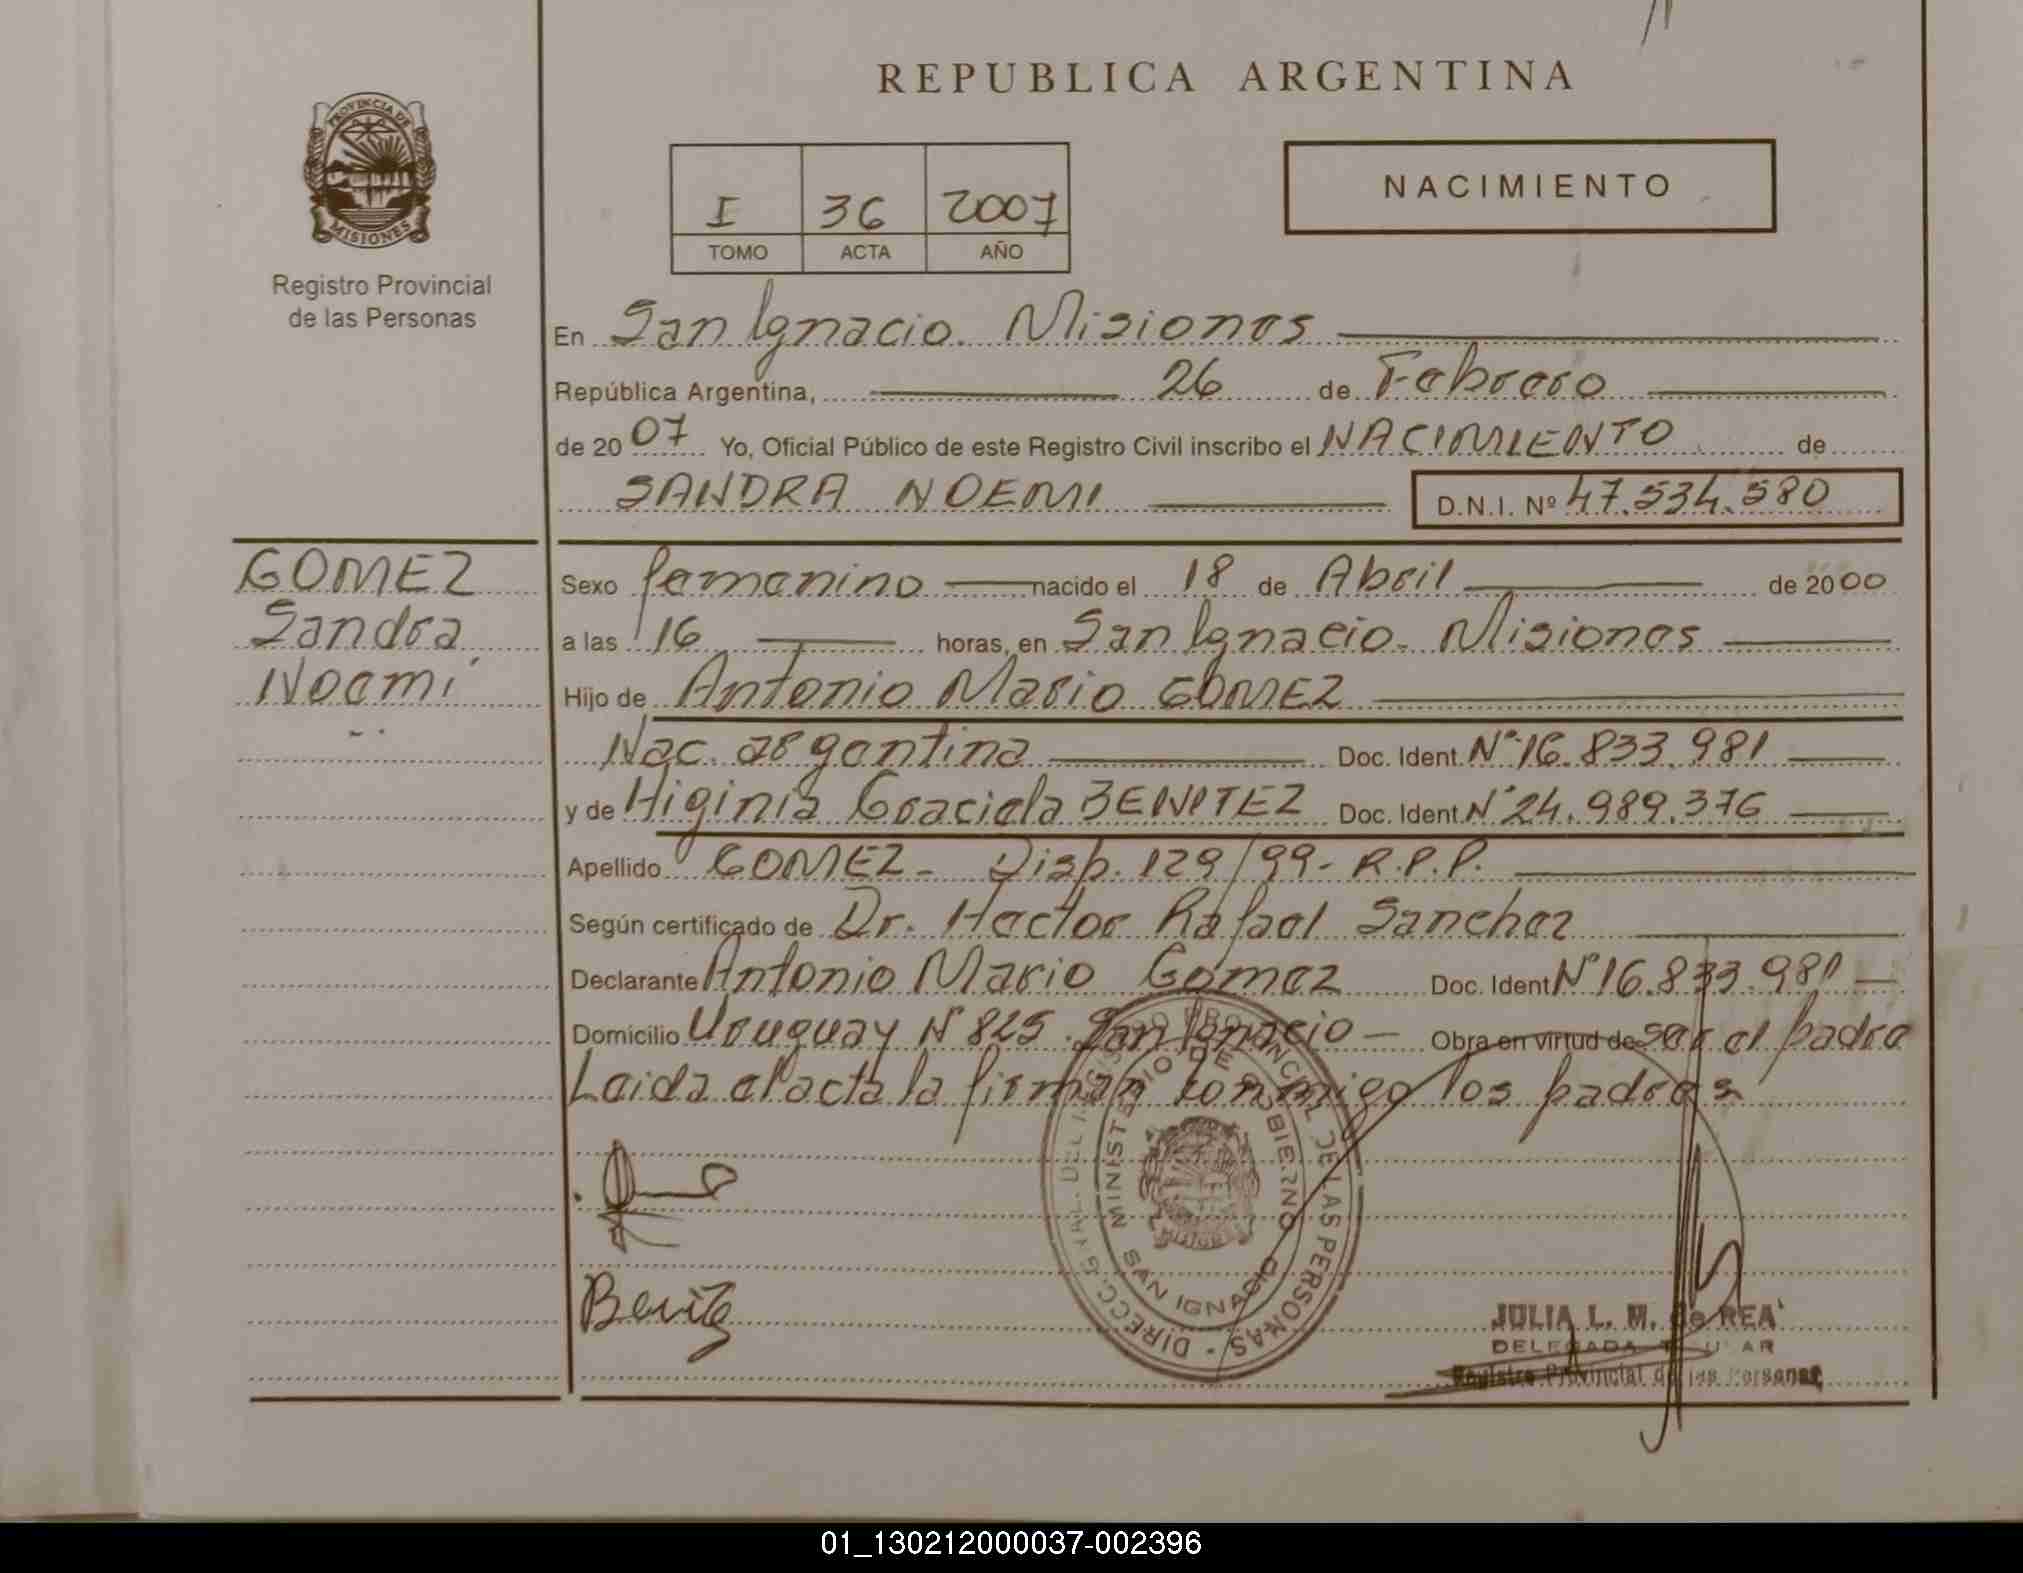 REPUBLICA ARGENTINA
PROVINCIA DE MISIONES
Registro Provincial
de las Personas
I 36 2007
TOMO ACTA AÑO
NACIMIENTO
En San Ignacio. Misiones
República Argentina, 26 de Febrero
de 2007 Yo, Oficial Público de este Registro Civil inscribo el NACIMIENTO de
SANDRA NOEMI D.N.I. Nº 47.534.580
GOMEZ
Sandra
Noemí
Sexo femenino nacido el 18 de Abril de 2000
a las 16 horas, en San Ignacio. Misiones
Hijo de Antonio Mario GOMEZ
Nac. argentina Doc. Ident. Nº 16.833.981
y de Higinia Graciela BENITEZ Doc. Ident. Nº 24.989.376
Apellido GOMEZ - Disp. 129/99- R.P.P.
Según certificado de Dr. Hector Rafael Sanchez
Declarante Antonio Mario Gomez Doc. Ident Nº 16.833.981
Domicilio Uruguay Nº 825 San Ignacio Obra en virtud de ser el padre
Leida el acta la firman conmigo los padres
Benitez
DIRECC. GRAL. DEL REGISTRO PROVINCIAL DE LAS PERSONAS
MINISTERIO DE GOBIERNO
SAN IGNACIO
JULIA L. M. de REA
DELEGADA TITULAR
Registro Provincial de las Personas
01_130212000037-002396